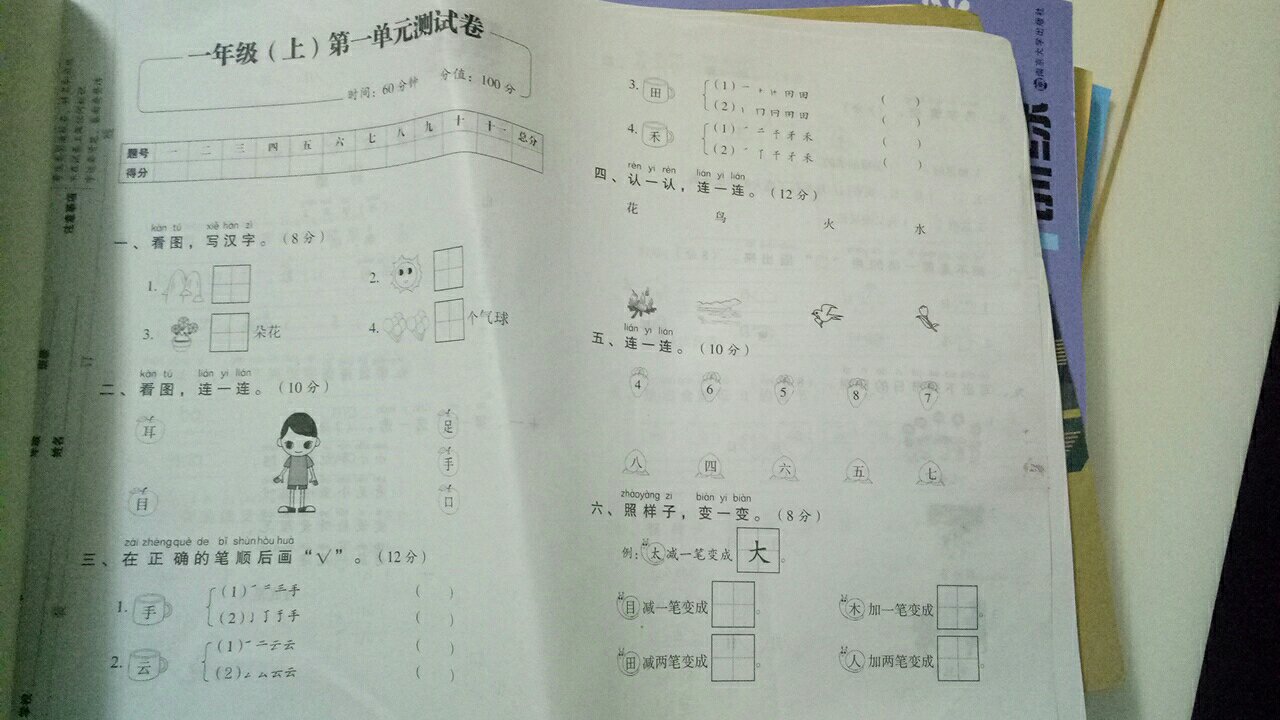 一年级（上）第一单元测试卷
时间：60分钟 分值：100分
题号 一 二 三 四 五 六 七 八 九 十 十一 总分
得分
kàn tú xiě hàn zì
一、看图，写汉字。（8分）
1. 2.
3. 朵花 4. 个气球
kàn tú lián yi lián
二、看图，连一连。（10分）
耳 足
手
目 口
zài zhèng què de bǐ shùn hòu huà
三、在正确的笔顺后画“√”。（12分）
1. 手 （1）一 二 三 手 （ ）
（2）亅 手 （ ）
2. 云 （1）一 二 云 云 （ ）
（2） 云 云 （ ）
3. 田 （1） 田 （ ）
（2） 冂 田 （ ）
4. 禾 （1） 二 千 禾 （ ）
（2） 千 禾 （ ）
rèn yi rèn lián yi lián
四、认一认，连一连。（12分）
花 鸟 火 水
lián yi lián
五、连一连。（10分）
4 6 5 8 7
八 四 六 五 七
zhàoyàng zi biàn yi biàn
六、照样子，变一变。（8分）
例：太减一笔变成 大 。
目减一笔变成 。 木加一笔变成 。
田减两笔变成 。 人加两笔变成 。
注意事项
学校
年级
班级
姓名
南京大学出版社